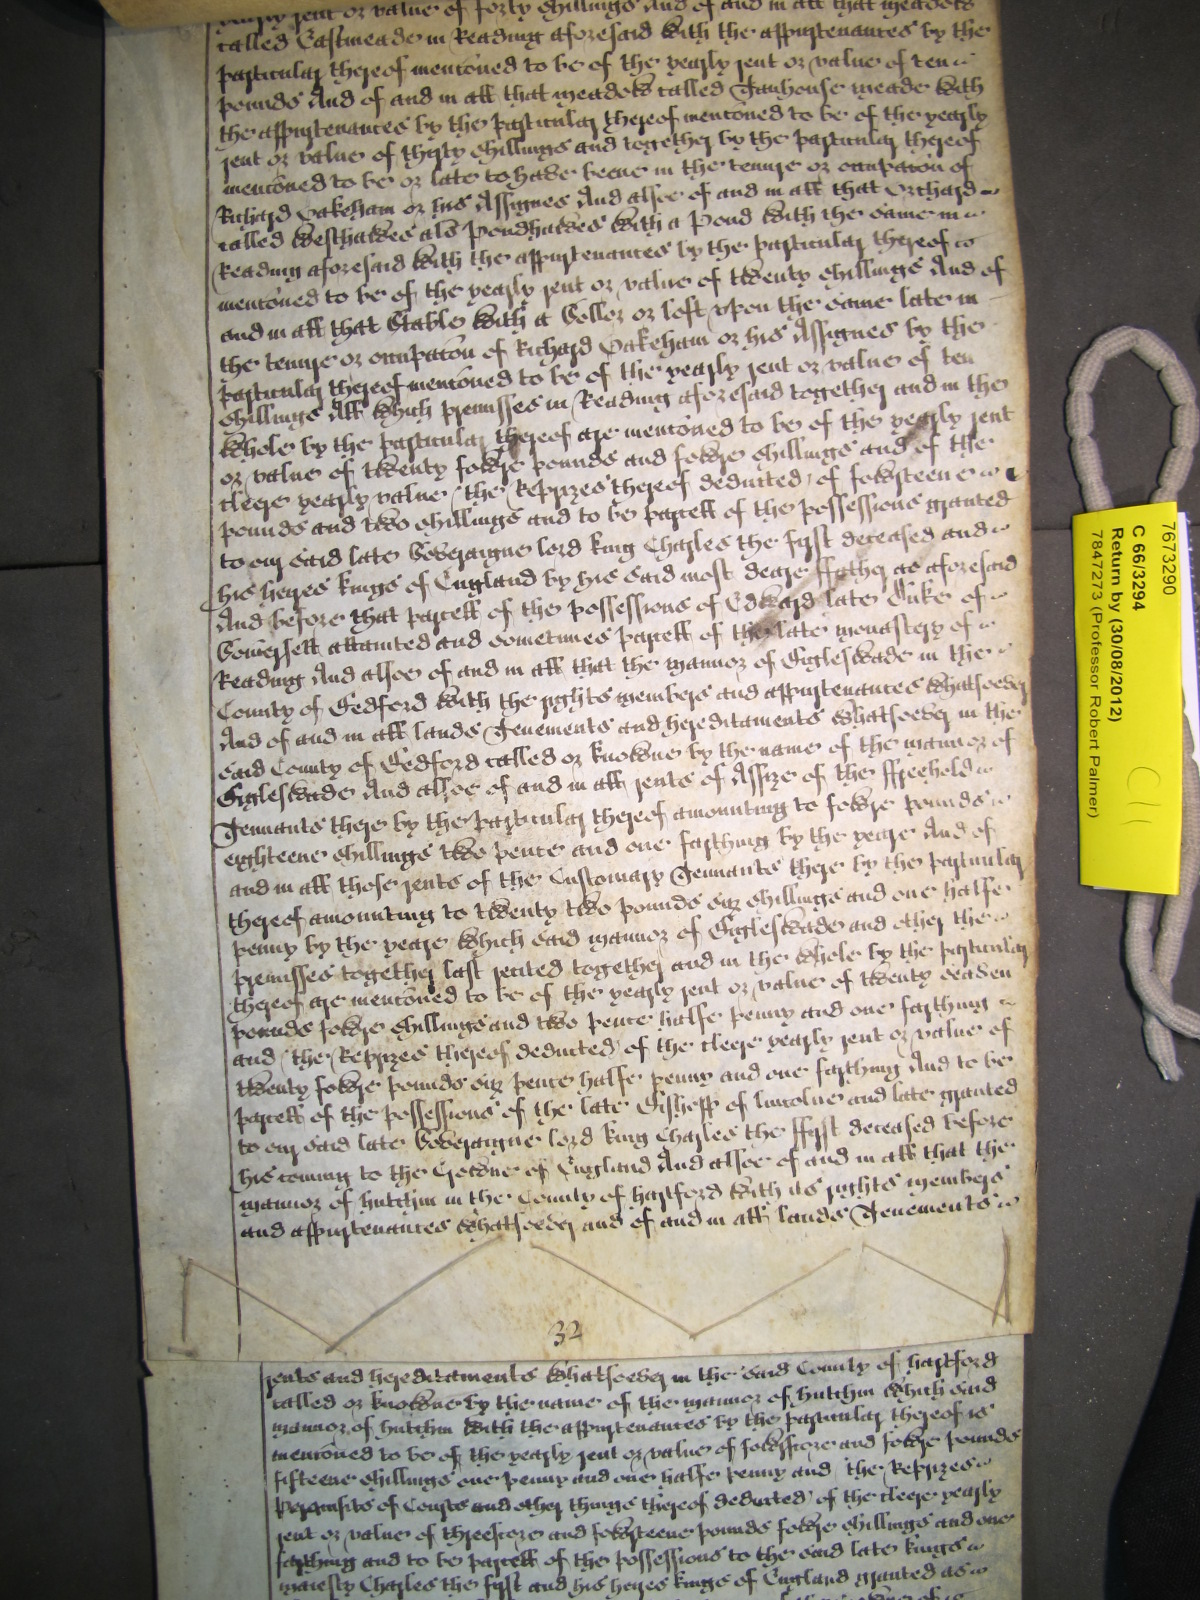 yearly rent or value of forty shillings And of and in all that meadow
called Eastmeade in Reading aforesaid with the appurtenances by the
particular thereof mentioned to be of the yearly rent or value of ten
pounds And of and in all that meadow called Tanhouse meade with
the appurtenances by the particular thereof mentioned to be of the yearly
rent or value of thirty shillings and together by the particular thereof
mentioned to be or late to have beene in the tenure or occupacon of
Richard Oakeham or his Assignes And alsoe of and in all that Orchard
called Westhawes als Pondhawes with a Pond with the same in
Reading aforesaid with the appurtenances by the particular thereof
mentioned to be of the yearly rent or value of twenty shillings And of
and in all that Stable with a Soller or loft upon the same late in
the tenure or occupacon of Richard Oakeham or his Assignes by the
particular thereof mentioned to be of the yearly rent or value of ten
shillings All which premisses in Reading aforesaid together and in the
whole by the particular thereof are mentioned to be of the yearly rent
or value of twenty fowre pounds and fowre shillings and of the
cleere yearly value (the Reprizes thereof deducted) of fowrteene
pounds and two shillings and to be parcell of the possessions granted
to our said late Soveraigne lord king Charles the first deceased and
his heires kings of England by his said most deare ffather as aforesaid
And before that parcell of the possessions of Edward late Duke of
Somersett attainted and sometimes parcell of the late monastery of
Reading And alsoe of and in all that the mannor of Bigleswade in the
County of Bedford with the rights members and appurtenances whatsoever
And of and in all lands Tenements and hereditaments whatsoever in the
said County of Bedford called or knowne by the name of the mannor of
Bigleswade And alsoe of and in all rents of Assize of the ffreehold
Tennants there by the particular thereof amounting to fowre pounds
eighteene shillings two pence and one farthing by the yeare And of
and in all those rents of the Customary Tennants there by the particular
thereof amounting to twenty two pounds six shillings and one halfe
penny by the yeare which said mannor of Bigleswade and other the
premisses together last recited together and in the whole by the particular
thereof are mentioned to be of the yearly rent or value of twenty seaven
pounds fowre shillings and two pence halfe penny and one farthing
and (the Reprizes thereof deducted) of the cleere yearly rent or value of
twenty fowre pounds six pence halfe penny and one farthing And to be
parcell of the possessions of the late Bishopp of Lincolne and late granted
to our said late Soveraigne lord king Charles the ffirst deceased before
his coming to the Crowne of England And alsoe of and in all that the
mannor of hutchin in the County of hartford with its rights members
and appurtenances whatsoever and of and in all lands Tenements
32
rents and hereditaments whatsoever in the said County of hartford
called or knowne by the name of the mannor of hutchin which said
mannor of hutchin with the appurtenances by the particular thereof is
mentioned to be of the yearly rent or value of fowrscore and fowre pounds
fifteene shillings one penny and one halfe penny and (the Reprizes
Perquisits of Courts and other things thereof deducted) of the cleere yearly
rent or value of threescore and fowrteene pounds fowre shillings and one
farthing and to be parcell of the possessions to the said late kings
maiesty Charles the first and his heires kings of England granted as
7673290
C 66/3294
Return by (30/08/2012)
7847273 (Professor Robert Palmer)
C11